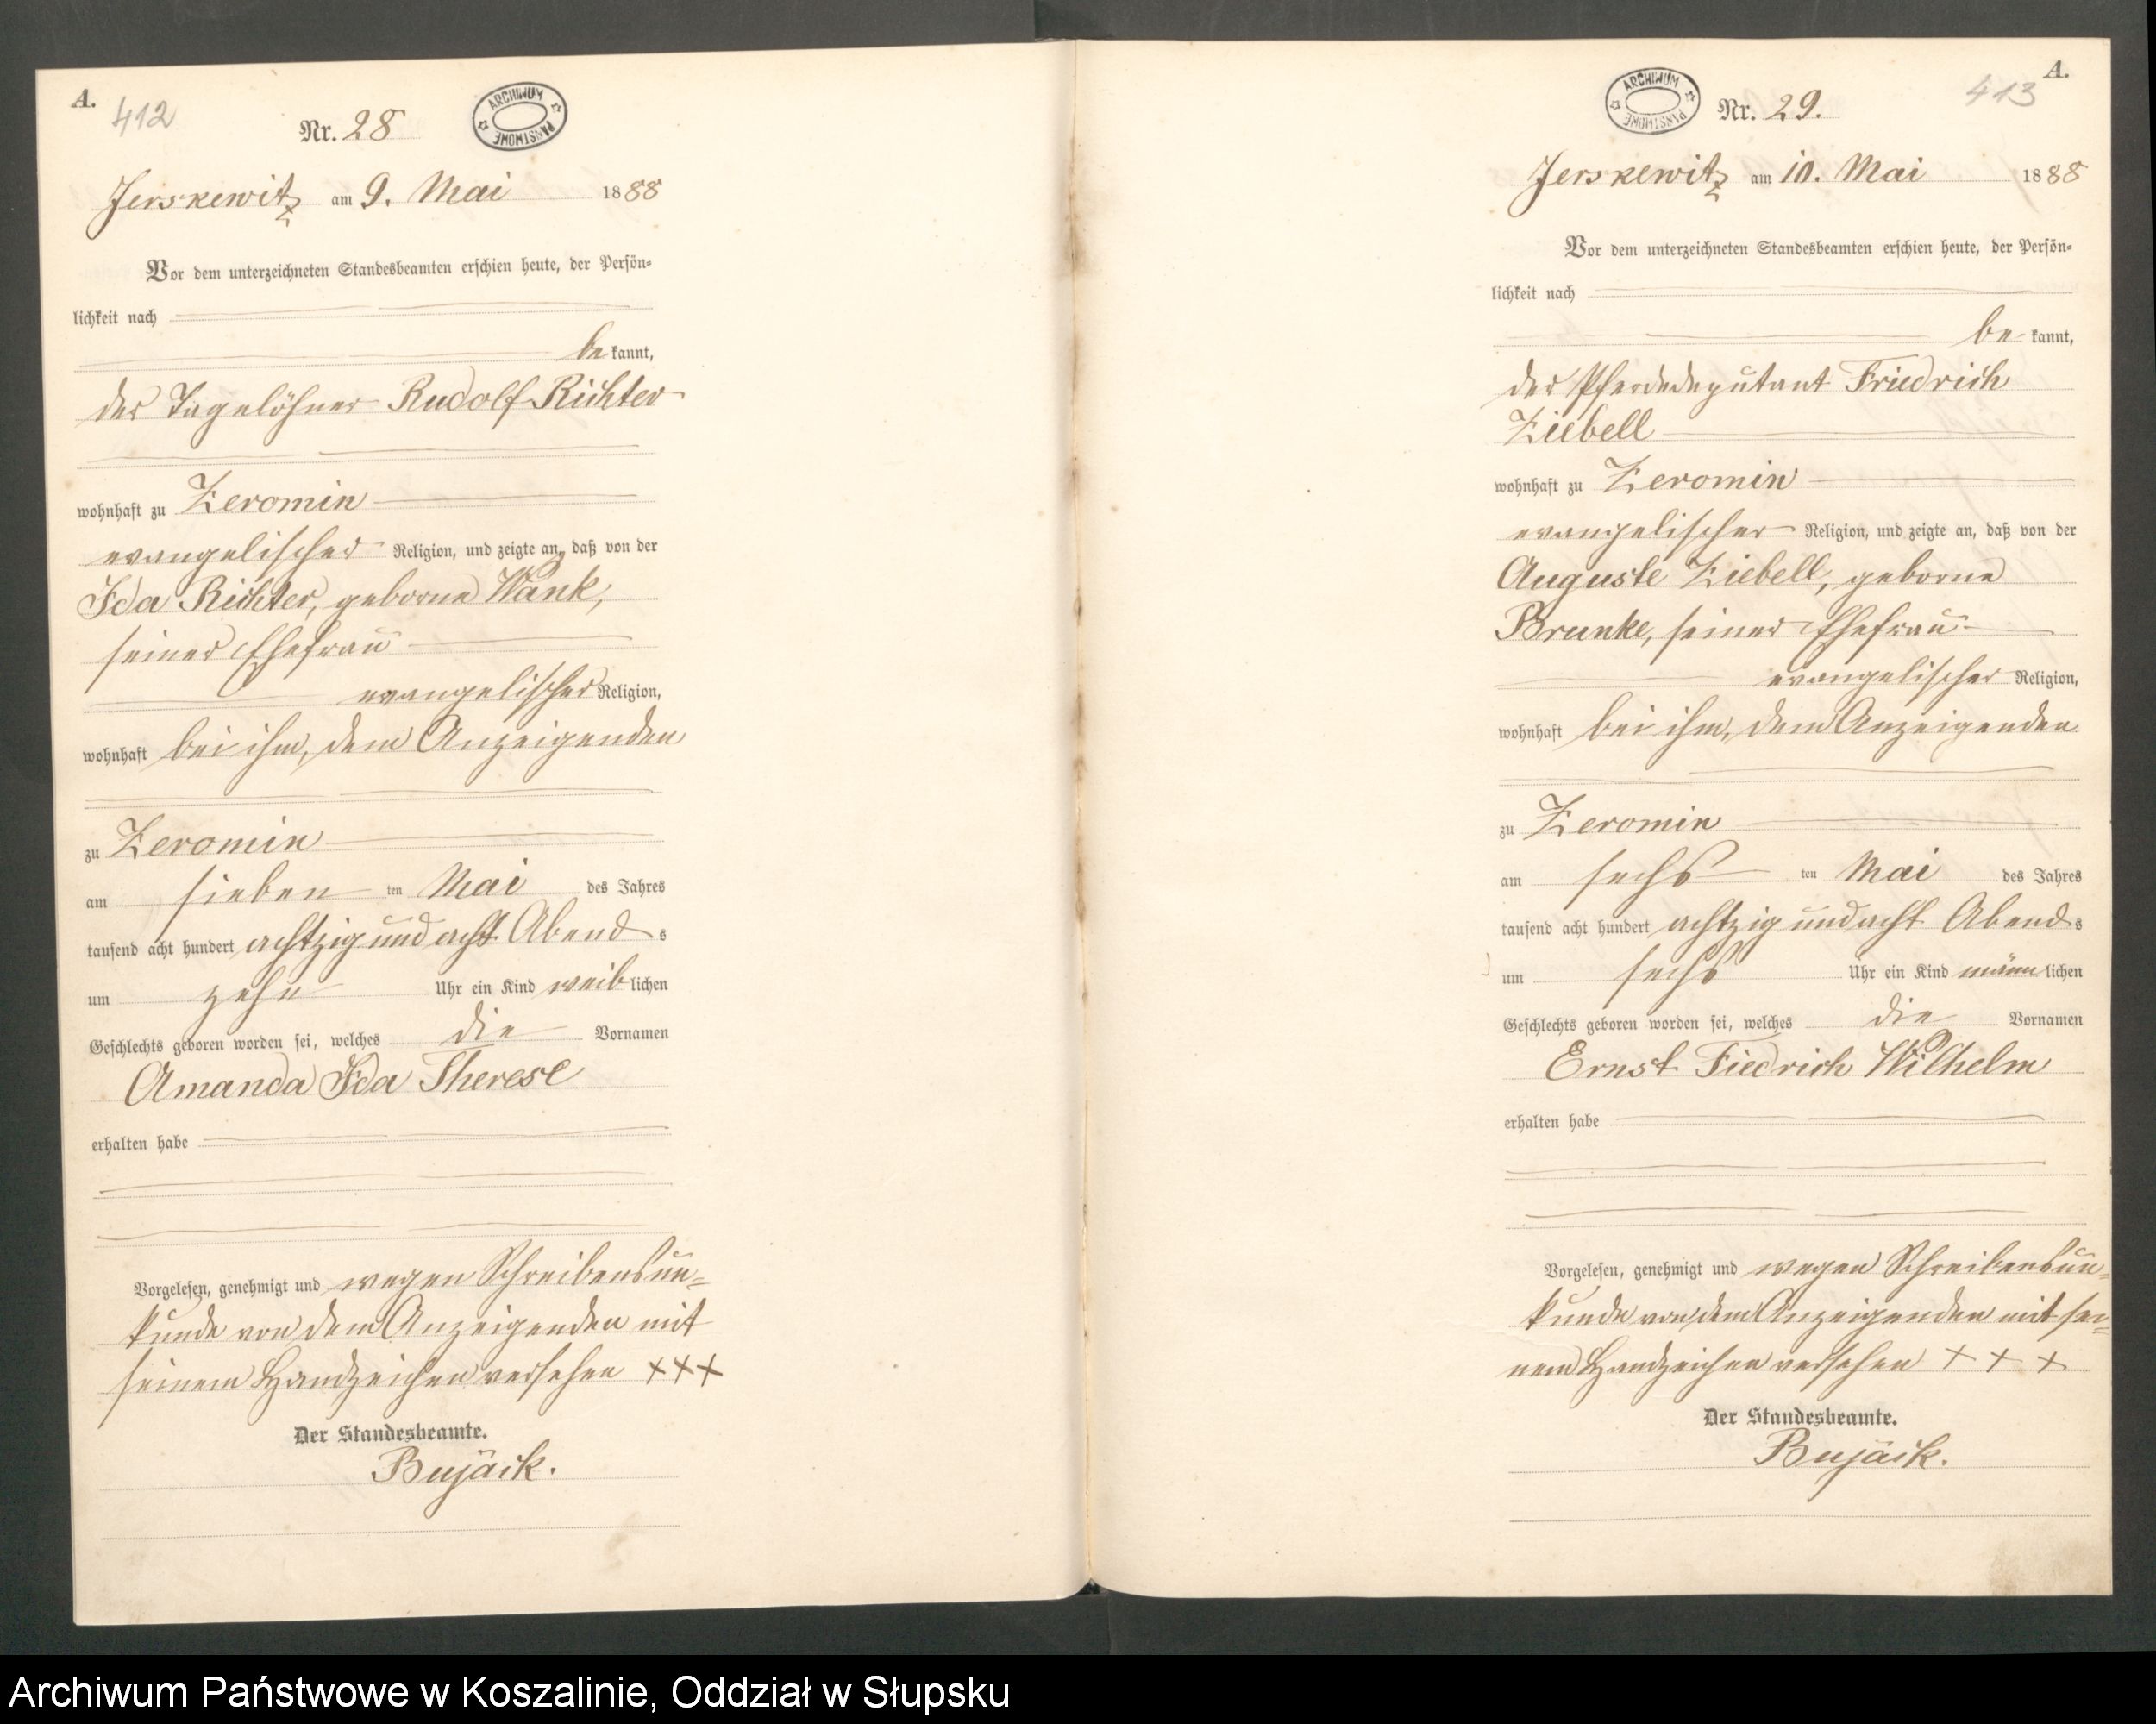 A.
412
Nr. 28
ARCHIWUM PAŃSTWOWE
Jerskewitz am 9. Mai 1888
Vor dem unterzeichneten Standesbeamten erschien heute, der Persön=
lichkeit nach
be kannt,
der Tagelöhner Rudolf Richter
wohnhaft zu Zeromin
evangelischer Religion, und zeigte an, daß von der
Ida Richter, geborne Wank,
seiner Ehefrau
evangelischer Religion,
wohnhaft bei ihm, dem Anzeigenden
zu Zeromin
am sieben ten Mai des Jahres
tausend acht hundert achtzig und acht Abend s
um zehn Uhr ein Kind weib lichen
Geschlechts geboren worden sei, welches die Vornamen
Amanda Ida Therese
erhalten habe
Vorgelesen, genehmigt und wegen Schreibensun=
kunde von dem Anzeigenden mit
seinem Handzeichen versehen +++
Der Standesbeamte.
Bujäck.
A.
413
ARCHIWUM PAŃSTWOWE
Nr. 29.
Jerskewitz am 10. Mai 1888
Vor dem unterzeichneten Standesbeamten erschien heute, der Persön=
lichkeit nach
be kannt,
der Pferdedeputant Friedrich
Ziebell
wohnhaft zu Zeromin
evangelischer Religion, und zeigte an, daß von der
Auguste Ziebell, geborne
Brunke, seiner Ehefrau
evangelischer Religion,
wohnhaft bei ihm, dem Anzeigenden
zu Zeromin
am sechs ten Mai des Jahres
tausend acht hundert achtzig und acht Abend s
um sechs Uhr ein Kind männ lichen
Geschlechts geboren worden sei, welches die Vornamen
Ernst Fiedrich Wilhelm
erhalten habe
Vorgelesen, genehmigt und wegen Schreibensun=
kunde von dem Anzeigenden mit sei=
nem Handzeichen versehen + + +
Der Standesbeamte.
Bujäck.
Archiwum Państwowe w Koszalinie, Oddział w Słupsku